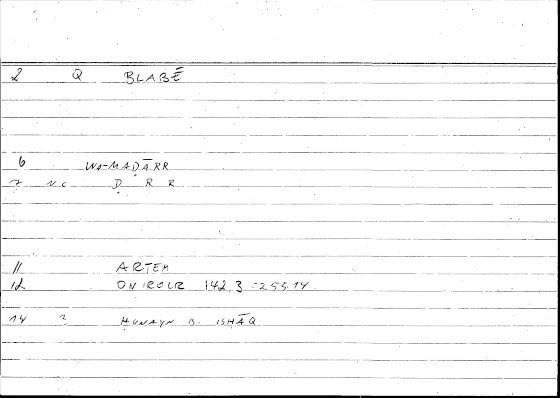 2 Q BLABĒ
6 WA-MAḌĀRR
7 NC Ḍ R R
11 ARTEM
12 ONIROCR 142,3 = 255.14
14 2 ḤUNAYN B. ISḤĀQ